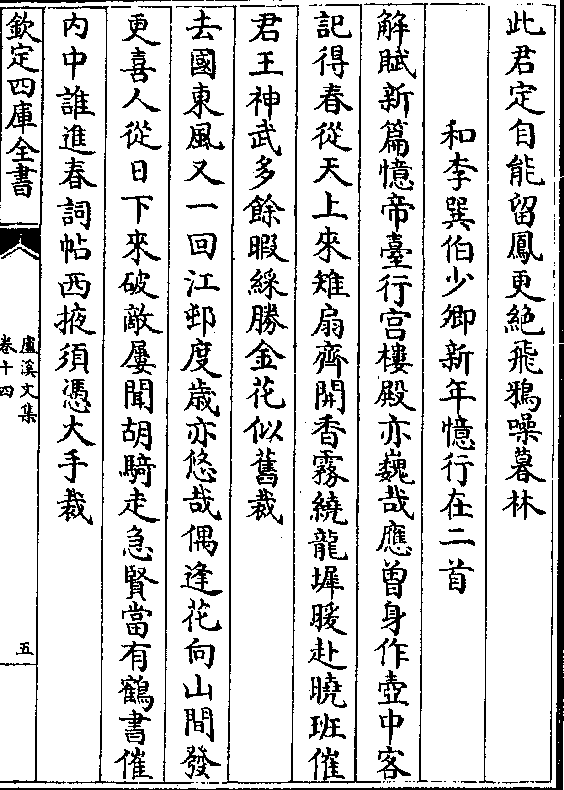 此君定自能留鳳更絶飛鴉噪暮林
和李巽伯少卿新年憶行在二首
解賦新篇憶帝臺行宫樓殿亦巍哉應曽身作壺中客
記得春從天上來雉扇齊開香霧繞龍墀暖赴曉班催
君王神武多餘暇綵勝金花似舊裁
去國東風又一回江邨度歳亦悠哉偶逢花向山間發
更喜人從日下來破敵屢聞胡騎走急賢當有鶴書催
内中誰進春詞帖西掖須憑大手裁
欽定四庫全書
盧溪文集
卷十四
五